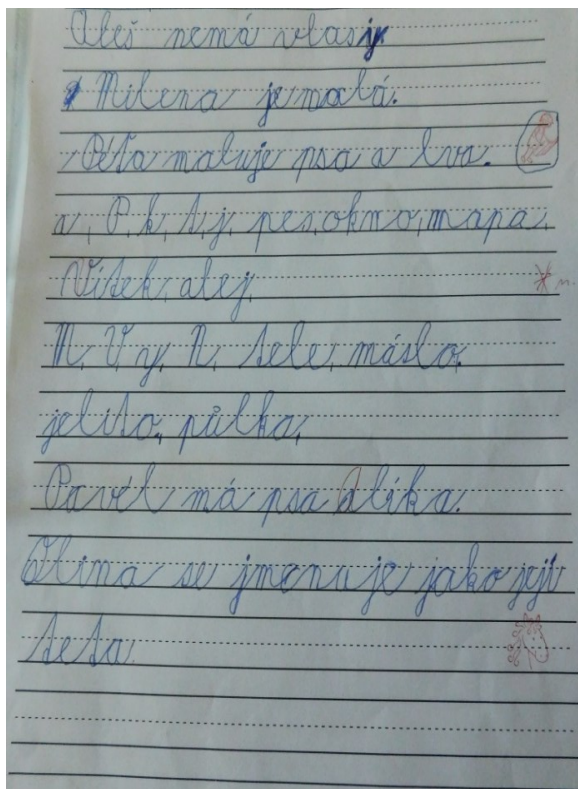 Aleš nemá vlasy.
Milena je malá.
Péťa maluje psa a lva.
v, P, k, t, j, pes, okno, mapa,
Vítek, alej,
M, V, y, N, tele, máslo,
jelito, půlka,
Pavel má psa Alíka.
Olina se jmenuje jako její
teta.